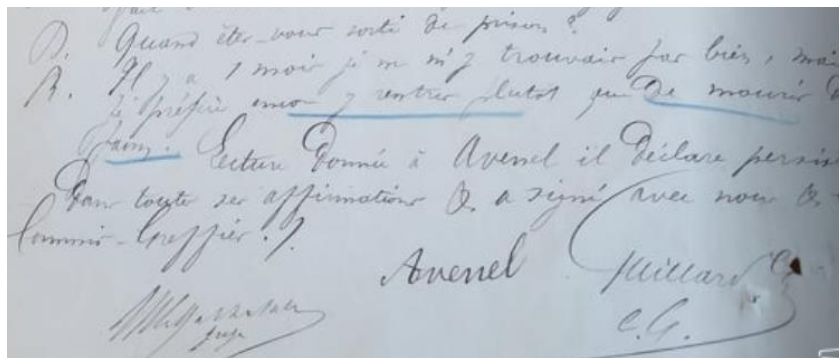 D. Quand êtes-vous sorti de prison ?
R. Il y a 1 mois je ne m'y trouvais pas bien, mai
je préfère encor y rentrer plutot que de mourir d
faim. Lecture donnée à Avenel il déclare persis
dans toutes ses affirmations & a signé avec nous &
Commis-Greffier.
Avenel
Juge
C. G.